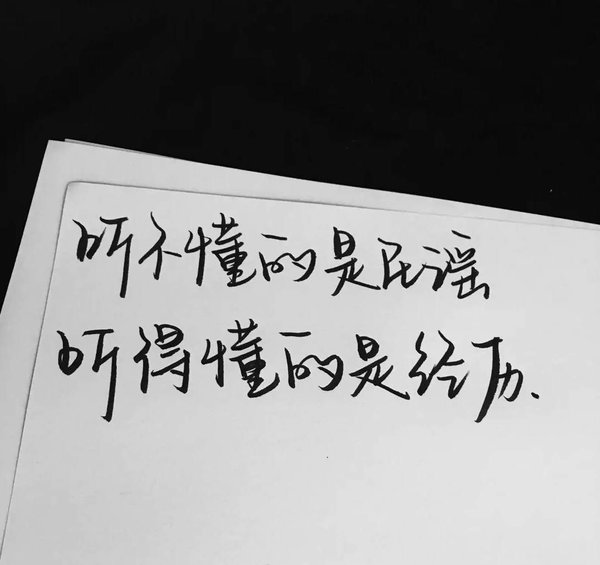 听不懂的是民谣
听得懂的是经历.